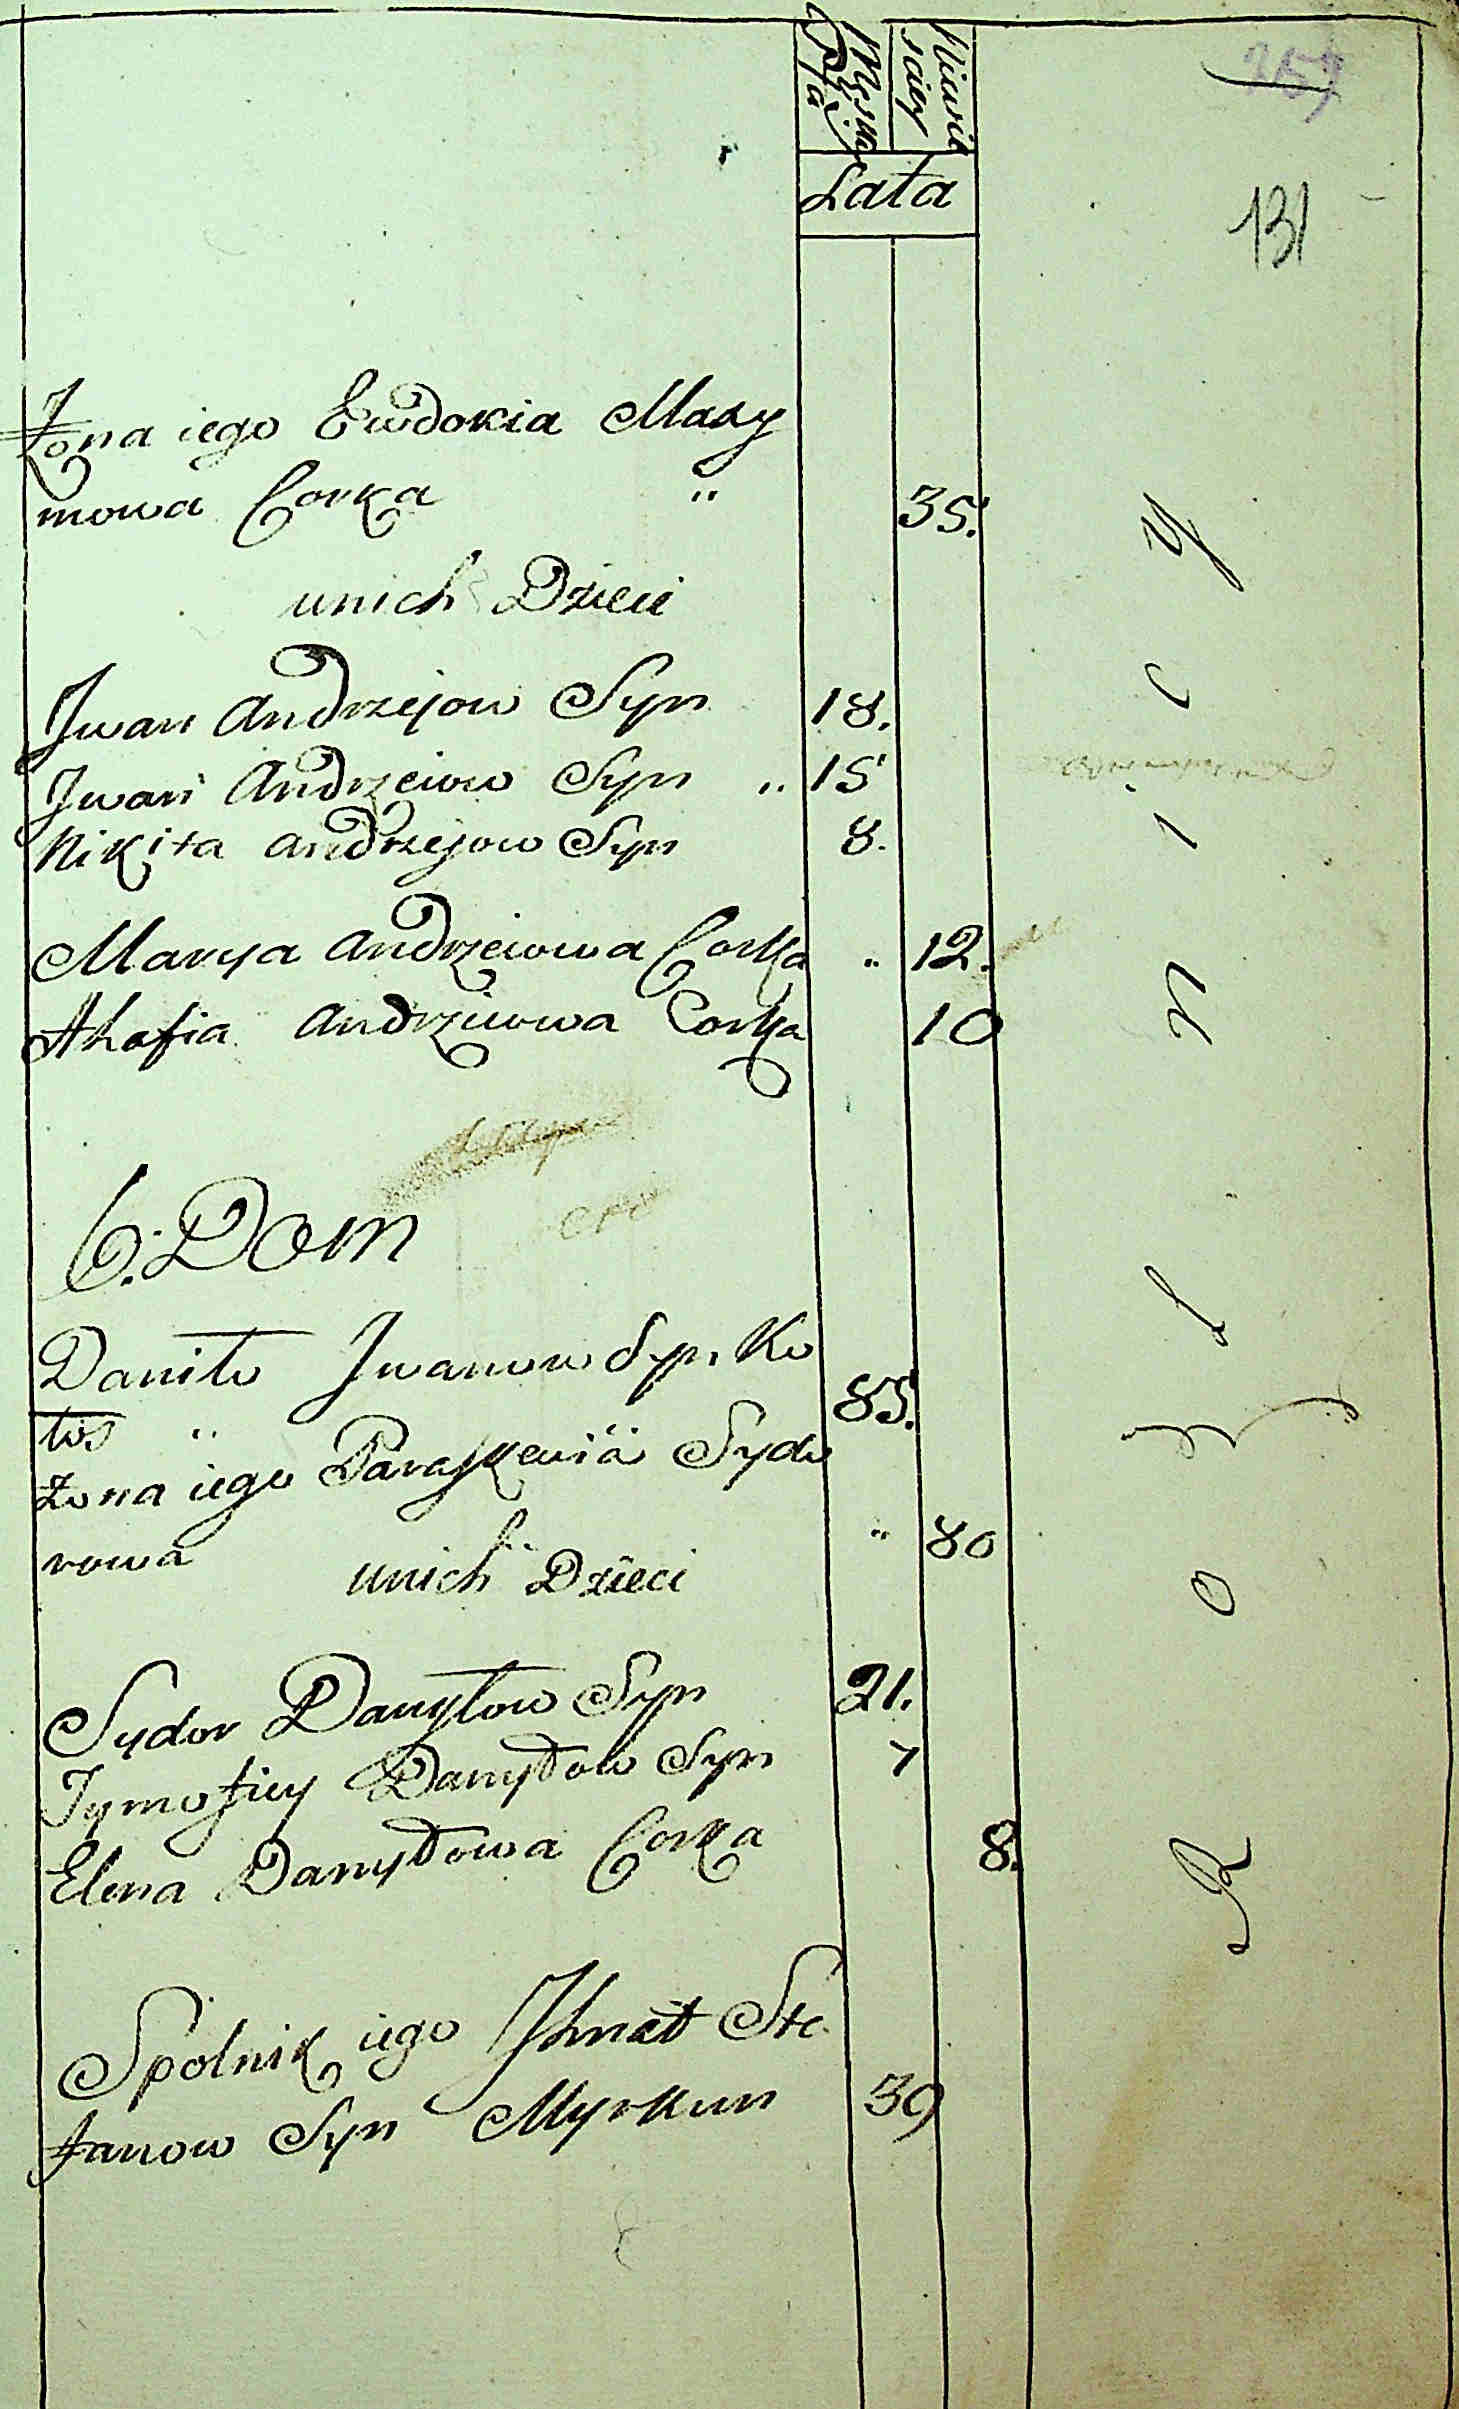 Męska
Płta
Niewie
sciey
Lata
131
Żona iego Ewdokia Maxy
mowa Corka "
35.
unich Dzieci
Iwan Andrzejow Syn 18.
Iwan Andrzeiow Syn " 15
Nikita Andrzejow Syn 8.
Marya Andrzeiowa Corka " 12.
Ahafia Andrzeiowa Corka 10
6. Dom
Daniło Iwanow Syn Ko
łos " 85.
Żona iego Paraskewia Sydo
rowa C. " 80
unich Dzieci
Sydor Danyłow Syn 21.
Tymofiey Danyłow Syn 7
Elena Danyłowa Corka 8.
Spolnik iego Ihnat Ste
fanow Syn Myrkun 39
Rolnicy